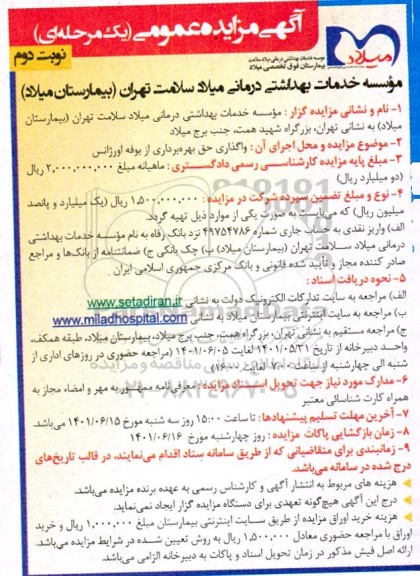 آگهی مزایده عمومی (یک مرحله‌ای)
نوبت دوم
میلاد
موسسه خدمات بهداشتی درمانی میلاد سلامت
بیمارستان فوق تخصصی میلاد
مؤسسه خدمات بهداشتی درمانی میلاد سلامت تهران (بیمارستان میلاد)
۱- نام و نشانی مزایده گزار : مؤسسه خدمات بهداشتی درمانی میلاد سلامت تهران (بیمارستان
میلاد) به نشانی تهران، بزرگراه شهید همت، جنب برج میلاد
۲- موضوع مزایده و محل اجرای آن: واگذاری حق بهره‌برداری از بوفه اورژانس
۳- مبلغ پایه مزایده کارشناسی رسمی دادگستری : ماهیانه مبلغ ۲,۰۰۰,۰۰۰,۰۰۰ ریال
(دو میلیارد ریال)
۴- نوع و مبلغ تضمین سپرده شرکت در مزایده : ۱,۵۰۰,۰۰۰,۰۰۰ ریال (یک میلیارد و پانصد
میلیون ریال) که می‌بایست به صورت یکی از موارد ذیل تهیه گردد.
الف) واریز نقدی به حساب جاری شماره ۴۹۷۵۴۷۸۶ نزد بانک رفاه به نام مؤسسه خدمات بهداشتی
درمانی میلاد سـلامت تهران (بیمارستان میلاد) ب) چک بانکی ج) ضمانتنامه از بانک‌ها و مراجع
صادر کننده مجاز و تأیید شده قانونی و بانک مرکزی جمهوری اسلامی ایران
۵- نحوه دریافت اسناد :
الف) مراجعه به سایت تدارکات الکترونیک دولت به نشانی www.setadiran.ir
ب) مراجعه به سایت اینترنتی بیمارستان میلاد به نشانی www.miladhospital.com
ج) مراجعه مستقیم به نشانی تهران، بزرگراه همت، جنب برج میلاد، بیمارستان میلاد، طبقه همکف،
واحد دبیرخانه از تاریخ ۱۴۰۱/۰۵/۳۱ لغایت ۱۴۰۱/۰۶/۰۵ (مراجعه حضوری در روزهای اداری از
شنبه الی چهارشنبه از ساعت ۷:۰۰ لغایت ۱۶:۰۰)
۶- مدارک مورد نیاز جهت تحویل اسناد مزایده : معرفی‌نامه ممهور به مهر و امضاء مجاز به
همراه کارت شناسائی معتبر
۷- آخرین مهلت تسلیم پیشنهادها : تا ساعت ۱۵:۰۰ روز سه شنبه مورخ ۱۴۰۱/۰۶/۱۵ می‌باشد.
۸- زمان بازگشایی پاکات مزایده : روز چهارشنبه مورخ ۱۴۰۱/۰۶/۱۶
۹- زمانبندی برای متقاضیانی که از طریق سامانه ستاد اقدام می‌نمایند، در قالب تاریخ‌های
درج شده در سامانه می‌باشد.
هزینه های مربوط به انتشار آگهی و کارشناس رسمی به عهده برنده مزایده می‌باشد.
درج این آگهی هیچ‌گونه تعهدی برای دستگاه مزایده گزار ایجاد نمی‌نماید.
هزینه خرید اوراق مزایده از طریق سـایت اینترنتی بیمارستان مبلغ ۱,۰۰۰,۰۰۰ ریال و خرید
اوراق با مراجعه حضوری معادل ۱,۵۰۰,۰۰۰ ریال به روش تعیین شـده در شرایط مزایده می‌باشد.
ارائه اصل فیش مذکور در زمان تحویل اسناد و پاکات به دبیرخانه الزامی می‌باشد.